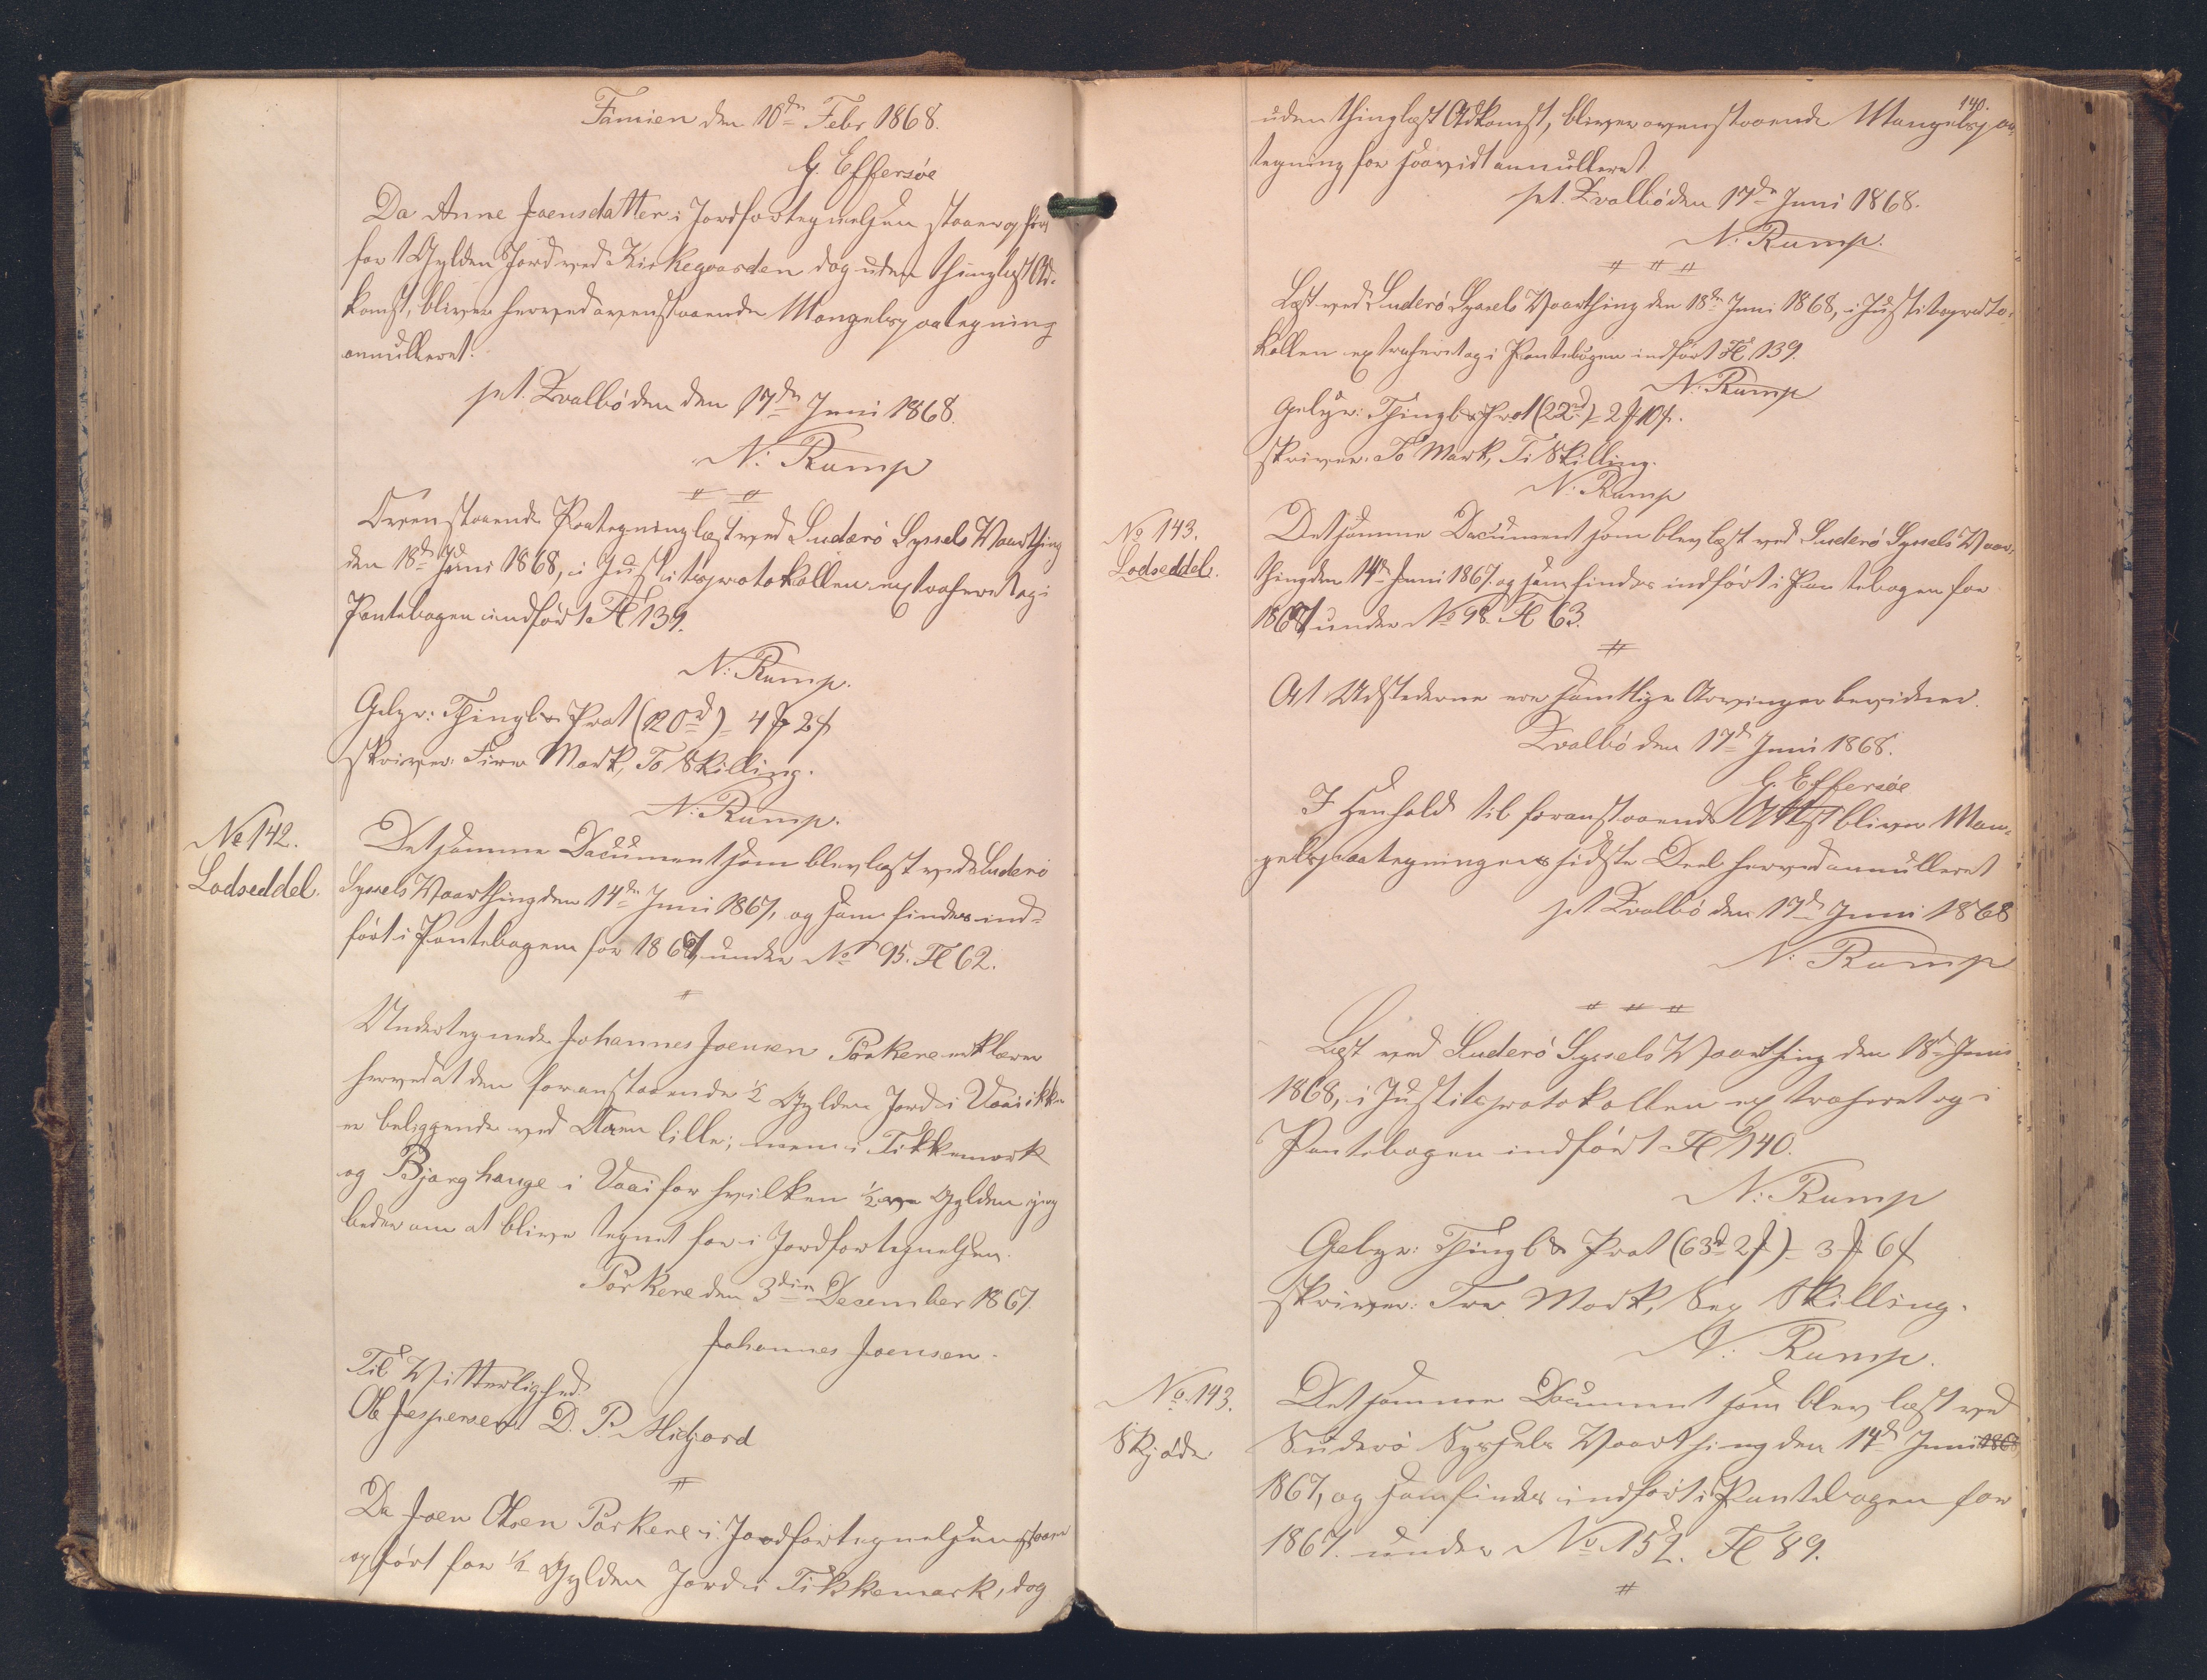 Famien den 10de Febr 1868.
G. Effersøe
Da Anne Joensdatter i Jordfortegnelsen staaer opført
for 1 Gylden Jord ved Kirkegaarden dog uden thinglæst Ad-
komst, bliver herved ovenstaaende Mangelspaategning
annulleret.
pt. Qvalbö den den 17de Juni 1868.
N. Rump
Ovenstaaende Paategning læst ved Suderö Syssels Vaarthing
den 18de Juni 1868, i Justitsprotokollen extraheret og i
Pantebogen indfört Fl 139.
N: Rump.
Gebyr: Thingl & Prot (120d) = 4 ₰ 2 ẞ
skriver: Fire Mark, To Skilling.
N: Rump.
No 142.
Lodseddel.
Det samme Document som blev læst ved Suderö
Syssels Vaarthing den 14de Juni 1867, og som findes ind-
fört i Pantebogen for 1867, under No 95. Fl 62.
Undertegnede Johannes Joensen Porkere erklærer
herved at den foranstaaende ½ Gylden Jord i Vaai ikke
er beliggende ved Aaen lille; men i Tikkemark
og Bjarghauge i Vaai for hvilken ½ Gylden jeg
beder om at blive tegnet for i Jordfortegnelsen.
Porkere den 3die December 1867.
Johannes Joensen.
Til Vitterlighed
Ole Jespersen D. P. Midjord
Da Joen Olsen Porkere i Jordfortegnelsen staaer
opfört for ½ Gylden Jord i Tikkemark, dog
140.
uden thinglæst Adkomst, bliver ovenstaaende Mangelspaa-
tegning for saavidt annulleret
pt. Qvalbö den 17de Juni 1868.
N. Rump.
Læst ved Suderö Syssels Vaarthing den 18de Juni 1868, i Justitsproto-
kollen extraheret og i Pantebogen indfört Fl 139.
N. Rump
Gebyr: Thingl & Prot (22d) = 2 ₰ 10 ẞ.
skriver: To Mark, Ti Skilling.
N. Rump
No 143.
Lodseddel.
Det samme Document som blev læst ved Suderö Syssels Vaar-
thing den 14de Juni 1867. og som findes indfört i Pantebogen for
1867 under No 98. Fl 63.
At Udstederne ere samtlige Arvinger bevidner.
Qvalbö den 17de Juni 1868.
G. Effersøe
I Henhold til foranstaaende Attest bliver Man-
gelspaategningens sidste Deel herved annulleret
pt Qvalbö den 17de Juni 1868
N: Rump
Læst ved Suderö Syssels Vaarthing den 18de Juni
1868, i Justitsprotokollen extraheret og i
Pantebogen indfört Fl 140.
N: Rump
Gebyr: Thingl & Prot (63d 2 ẞ) = 3 ₰ 6 ẞ
skriver: Tre Mark, Sex Skilling.
N: Rump.
No 143.
Skjöde
Det samme Document som blev læst ved
Suderö Syssels Vaarthing den 14de Juni 1868
1867, og som findes indfört i Pantebogen for
1867. under No 152. Fl 89.